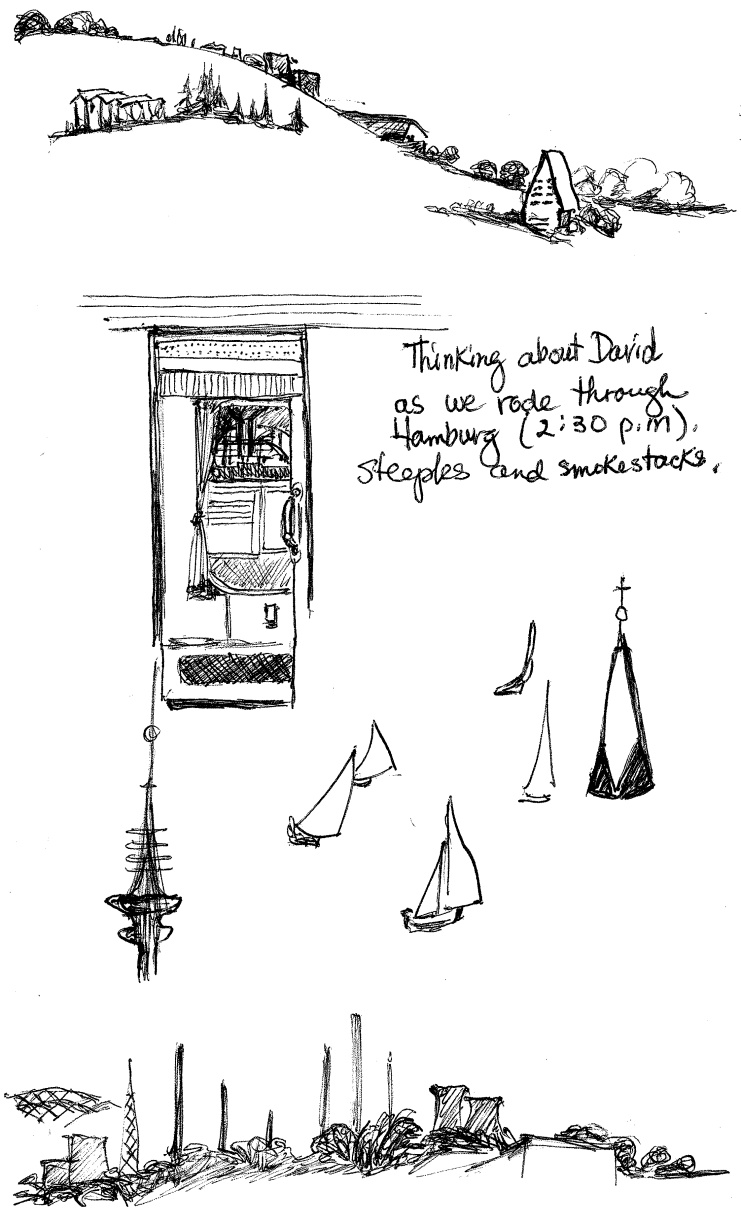 Thinking about David
as we rode through
Hamburg (2:30 p.m).
steeples and smokestacks.